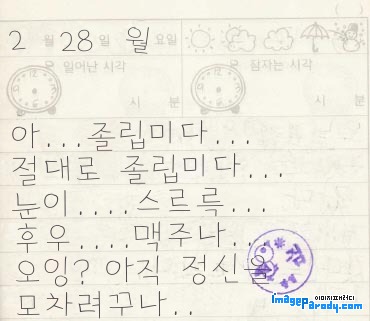 2 월 28 일 월 요일
일어난 시각 잠자는 시각
시 분 시 분
아...졸립미다...
절대로 졸립미다...
눈이....스르륵...
후우....맥주나...
오잉? 아직 정신을
모차려꾸나..
이미지패러디
ImageParody.com